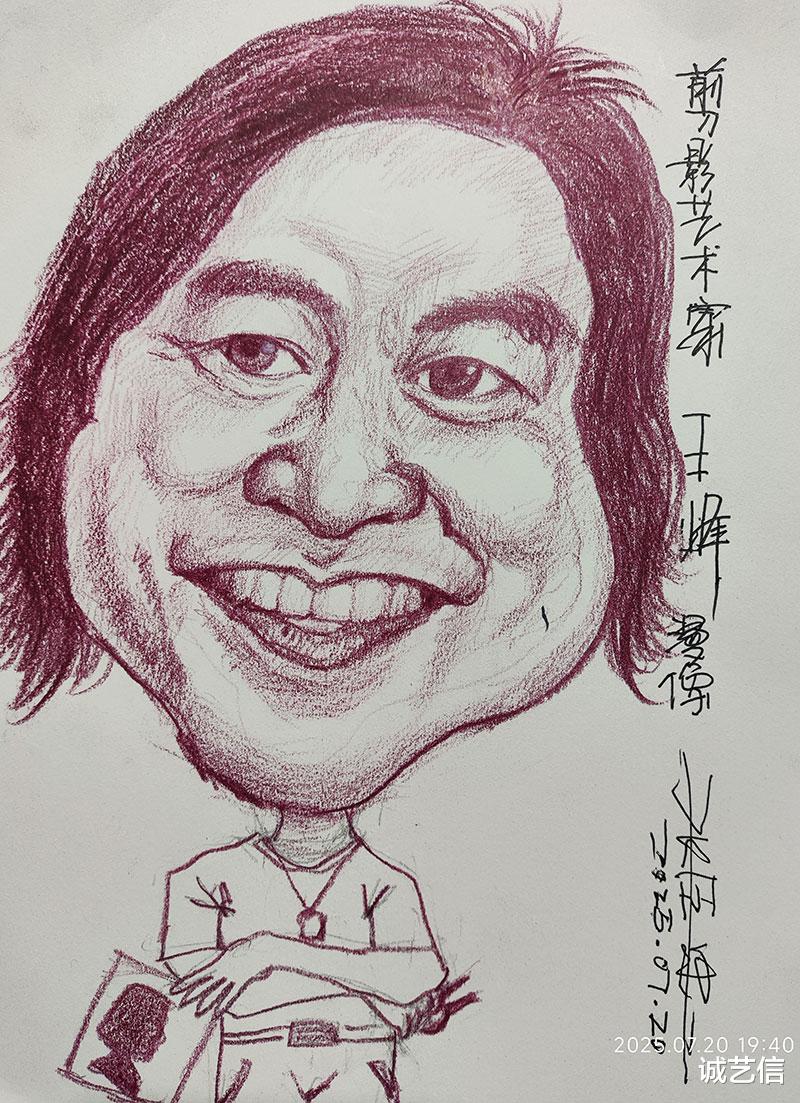 剪影艺术家 王 畫像
2025.07.20
2025.07.20 19:40
诚艺信